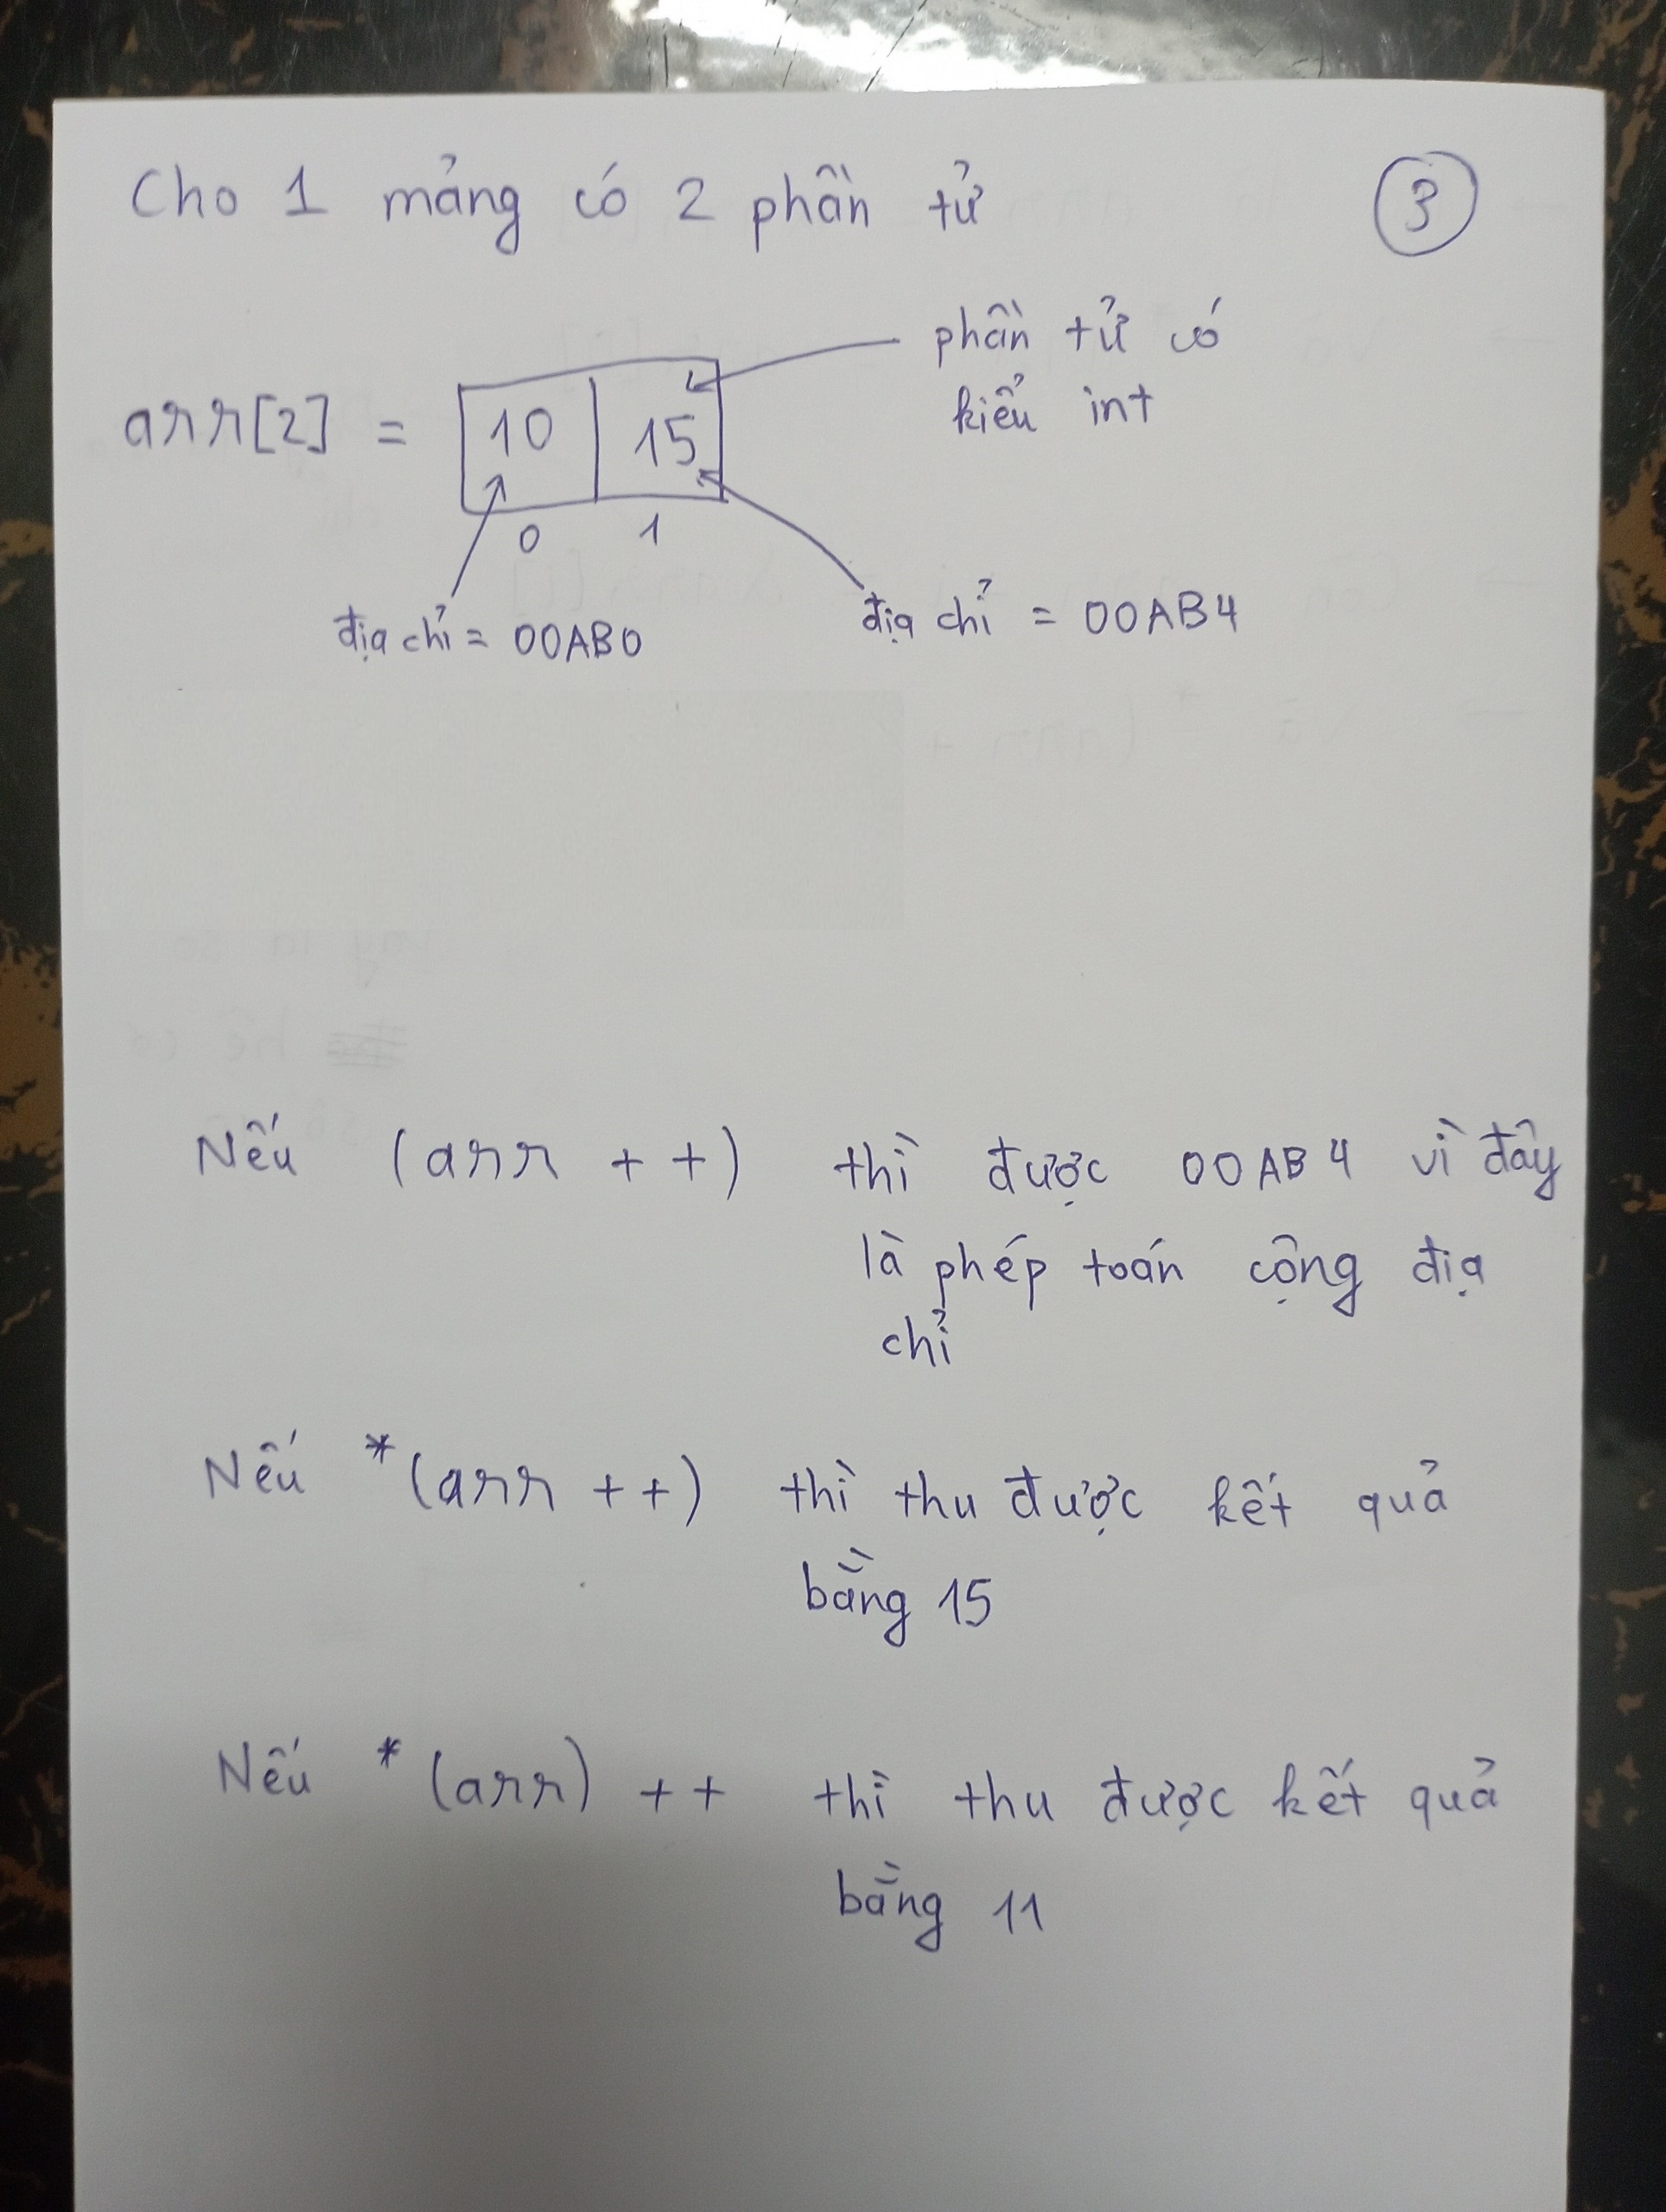 Cho 1 mảng có 2 phần tử
3
phần tử có
kiểu int
arr[2] = 10 15
0 1
địa chỉ = 00AB0
địa chỉ = 00AB4
Nếu (arr ++) thì được 00AB4 vì đây
là phép toán cộng địa
chỉ
Nếu *(arr ++) thì thu được kết quả
bằng 15
Nếu *(arr) ++ thì thu được kết quả
bằng 11